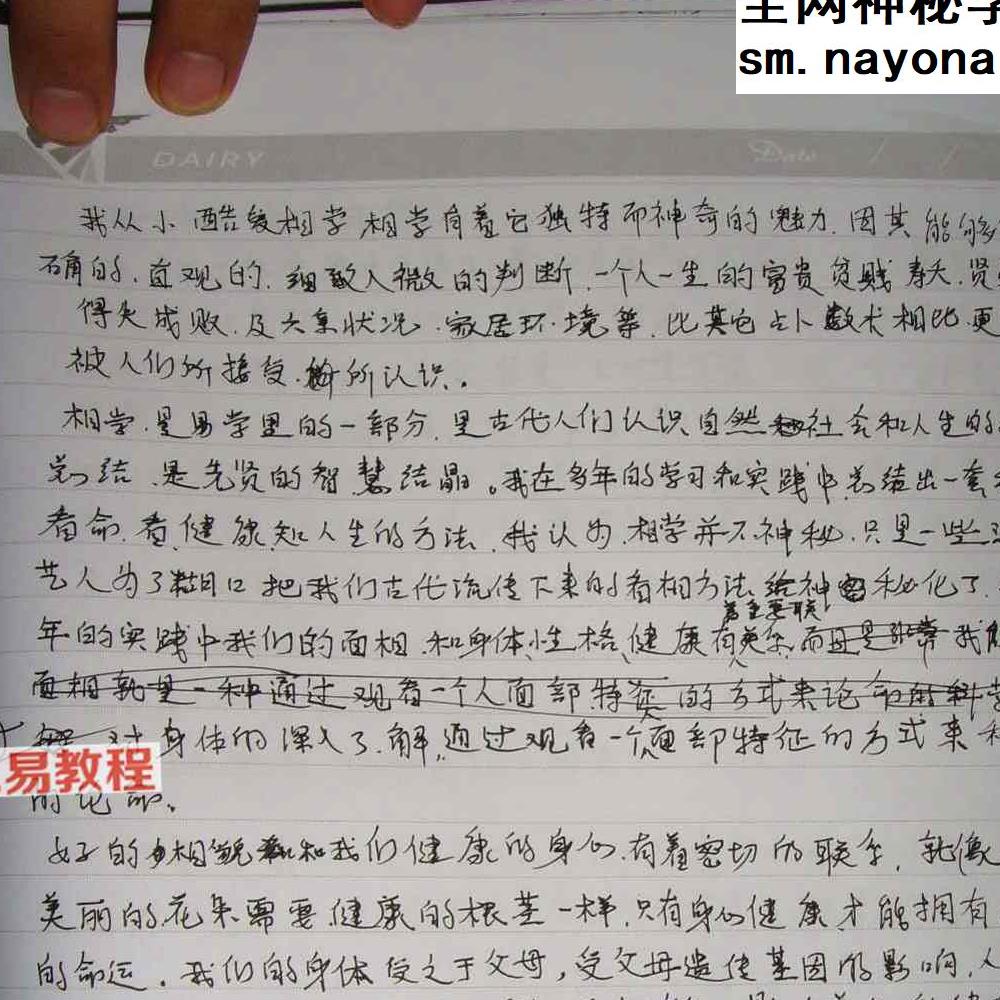 全网神秘学
sm.nayona
DAIRY
Date / /
我从小酷爱相学 相学有着它独特而神奇的魅力.因其能够
确的、直观的、细致入微的判断.一个人一生的富贵贫贱 寿夭.贤
得失成败.及六亲状况.家居环境等.比其它占卜数术相比.更
被人们所接受.所认识。
相学.是易学里的一部分.是古代人们认识自然社会和人生的
总结.是先贤的智慧结晶。我在多年的学习和实践中总结出一套
看命.看健康.知人生的方法.我认为.相学并不神秘.只是一些
艺人为了糊口把我们古代流传下来的看相方法给神秘化了.
着重要联
年的实践中我们的面相.和身体、性格、健康有关系 而且是非常 我
面相就是一种通过观看一个人面部特征的方式来论命的科学
对身体的深入了解,通过观看一个面部特征的方式来
易教程
的论命。
好的相貌和我们健康的身心.有着密切的联系.就像
美丽的花朵需要健康的根茎一样.只有身心健康才能拥有
的命运。我们的身体受之于父母,受父母遗传基因的影响.人